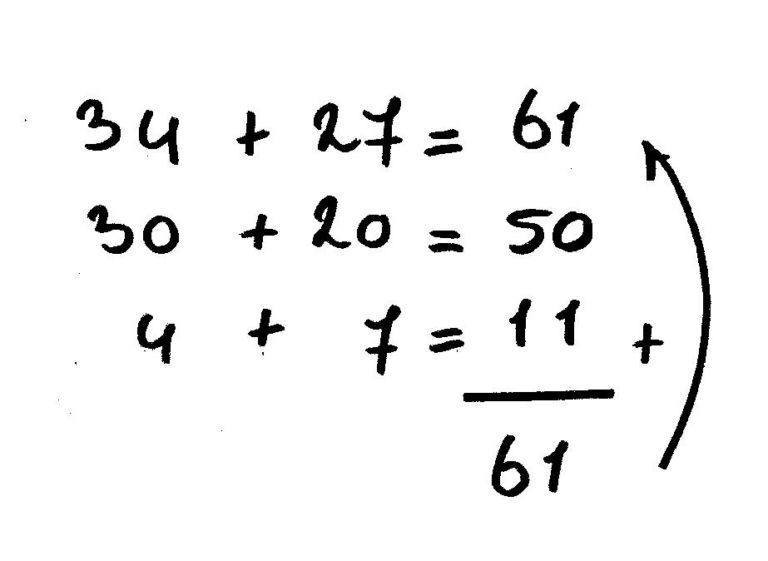 34 + 27 = 61
30 + 20 = 50
4 + 7 = 11 +
61